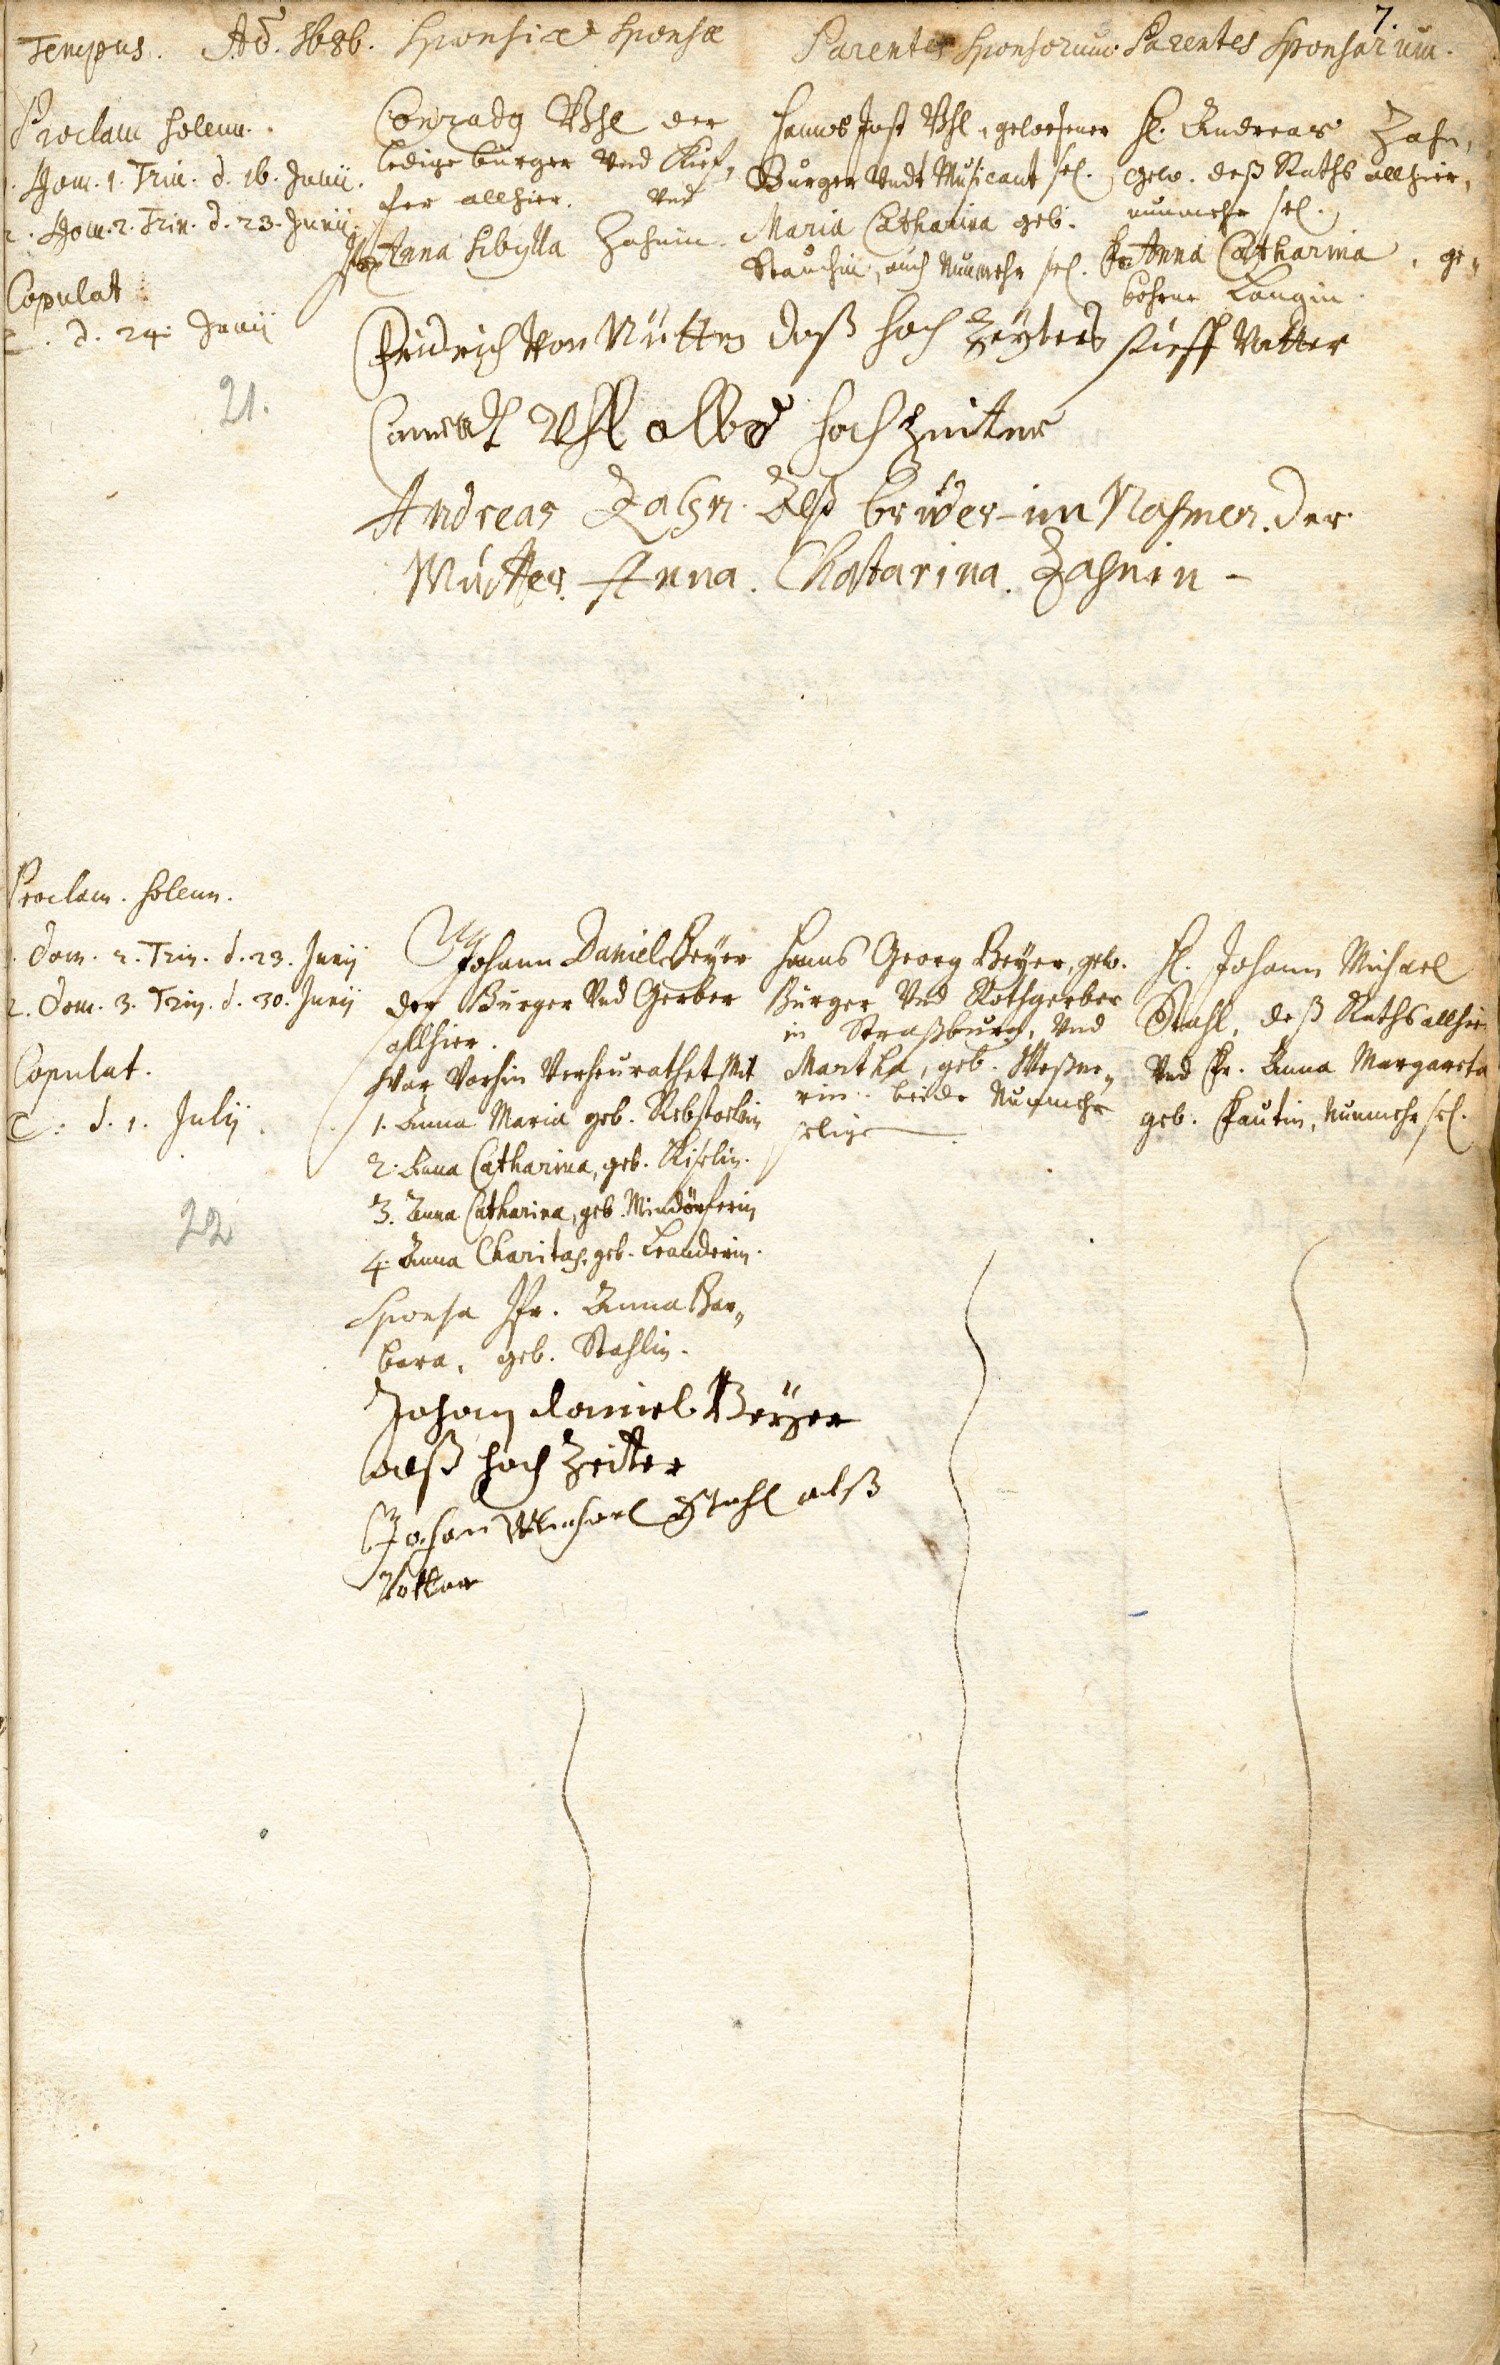 7.
Tempus. Aõ. 1686. Sponsi & Sponsæ Parentes Sponsorum Parentes Sponsarum.
Proclam solenn.
1. Dom. 1. Trin. d. 16. Junij.
2. Dom. 2. Trin. d. 23. Junij.
Copulat
d. 24. Junij
21.
Conradg Vhl der
ledige burger Vnd Kief,,
fer allhier. Vnd
Jfr Anna Sibylla Zahnin.
Hannß Jost Vhl, geweßener
Burger Vndt Musicant sel.
Maria Catharina geb.
Stauchin, auch Nunmehr sel.
H. Andreas Zahn,
gew. deß Raths allhier,
nunmehr sel.,
Fr Anna Catharina, ge,,
bohrne Langin.
Fridrich Von Nütten daß hoch Zeyters stieff Vatter
Conradt Vhl alls hoch Zeiter
Andreas Zahn. Alß bruder im Nahmen der
Mutter. Anna. Chatarina. Zahnin -
Proclam. solenn.
1. Dom. 2. Trin. d. 23. Junij
2. Dom. 3. Trin. d. 30. Junij
Copulat.
d. 1. Julij.
22
Johann Daniel Beyer
der Burger Vnd Gerber
allhier.
War Vorhin Verheurathet Mit
1. Anna Maria geb. Rebstockin
2. Anna Catharina, geb. Kiselin.
3. Anna Catharina, geb. Mindörferin
4. Anna Charitas, geb. Leanderin.
Sponsa Jfr. Anna Bar,,
bara, geb. Stahlin.
Hanns Georg Beyer, gew.
Burger Vnd Rothgerber
in Straßburg, Vnd
Martha, geb. Meßne,,
rin. beide Nunmehr
selig
H. Johann Michael
Stahl, deß Raths allhier
Vnd Fr. Anna Margareta
geb. Fautin, Nunmehr sel.
Johan daniel Beÿer
alß hoch Zeitter
Johan Michael Stahl alß
Vatter